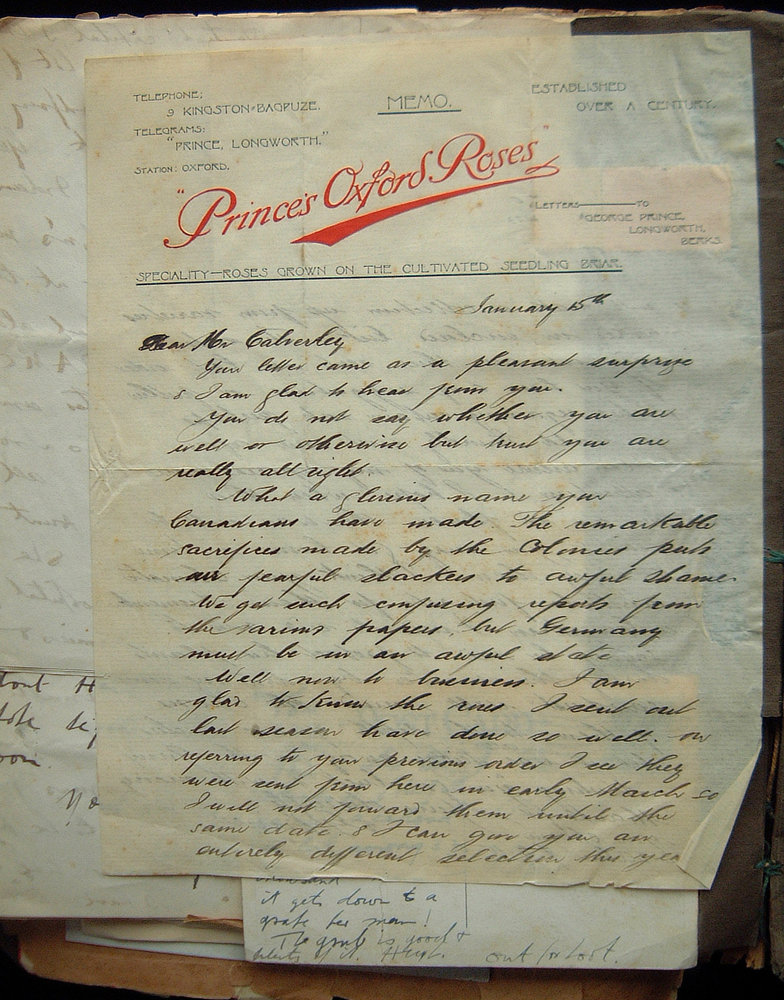 TELEPHONE;
9 KINGSTON-BAGPUZE.
TELEGRAMS:
"PRINCE, LONGWORTH."
STATION: OXFORD.
MEMO.
ESTABLISHED
OVER A CENTURY.
"Prince's Oxford Roses"
LETTERS TO
GEORGE PRINCE,
LONGWORTH,
BERKS.
SPECIALITY—ROSES GROWN ON THE CULTIVATED SEEDLING BRIAR.
January 15th
Dear Mr Calverley
Your letter came as a pleasant surprize
& I am glad to hear from you.
You do not say whether you are
well or otherwise but trust you are
really all right.
What a glorious name you
Canadians have made. The remarkable
sacrifices made by the Colonies puts
our fearful slackers to awful shame.
We get such confusing reports from
the various papers, but Germany
must be in an awful state
Well now to business. I am
glad to know the roses I sent out
last season have done so well. on
referring to your previous order I see they
were sent from here in early March so
I will not forward them until the
same date. & I can give you an
entirely different selection this year
it gets down to a
man!
The grub is good &
plenty of it.
out for loot.